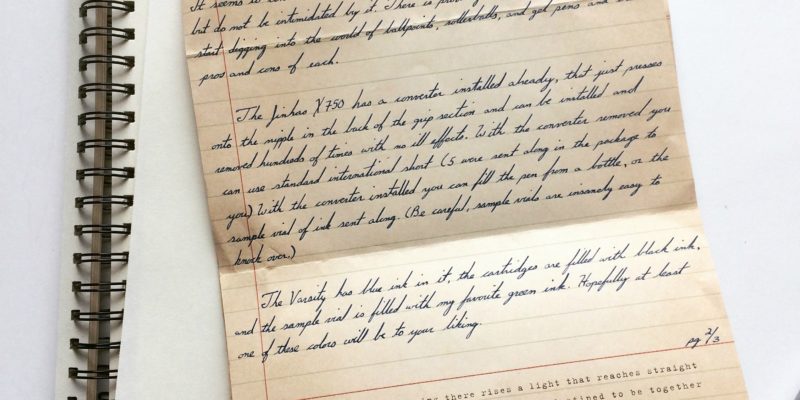 It seems
but do not be intimidated by it. There is
start digging into the world of ballpoints, rollerballs, and gel pens and
pros and cons of each.
The Jinhao X750 has a converter installed already, that just presses
onto the nipple in the back of the grip section and can be installed and
removed hundreds of times with no ill effects. With the converter removed you
can use standard international short (5 were sent along in the package to
you) With the converter installed you can fill the pen from a bottle, or the
sample vial of ink sent along. (Be careful, sample vials are insanely easy to
knock over.)
The Varsity has blue ink in it, the cartridges are filled with black ink,
and the sample vial is filled with my favorite green ink. Hopefully at least
one of these colors will be to your liking.
pg 2/3
there rises a light that reaches straight
to be together